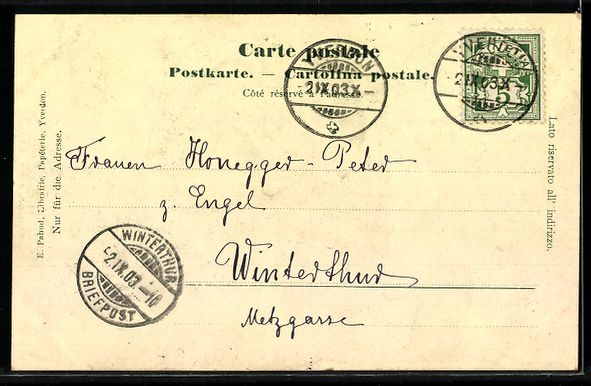 Carte postale
Postkarte. — Cartolina postale.
Côté réservé à l'adresse.
YVERDON
2 IX 03 X–
YVERDON
2 IX 03 X
E. Pahud, Librairie, Papéterie, Yverdon.
Nur für die Adresse.
Lato riservato all' indirizzo.
Frauen Honegger-Peter
z. Engel
Winterthur
Metzgasse
WINTERTHUR
2.IX.03.–10
BRIEFPOST